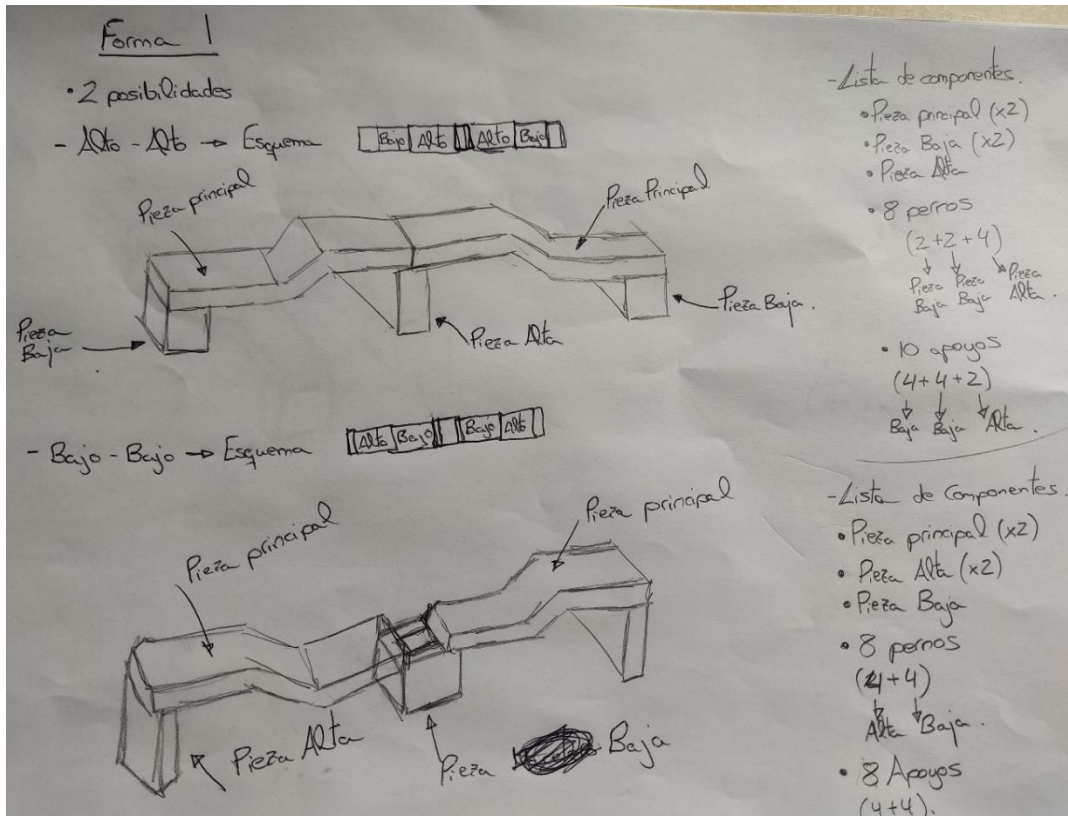 Forma 1
• 2 posibilidades
- Alto - Alto → Esquema
Bajo Alto Alto Bajo
Pieza principal
Pieza Principal
Pieza Baja
Pieza Alta
Pieza Baja.
- Bajo - Bajo → Esquema
Alto Bajo Bajo Alto
Pieza principal
Pieza principal
Pieza Alta
Pieza Baja
- Lista de componentes.
• Pieza principal (x2)
• Pieza Baja (x2)
• Pieza Alta
• 8 pernos
(2+2+4)
Pieza Baja Pieza Baja Pieza Alta.
• 10 apoyos
(4+4+2)
Baja Baja Alta.
- Lista de Componentes.
• Pieza principal (x2)
• Pieza Alta (x2)
• Pieza Baja
• 8 pernos
(4+4)
Alta Baja.
• 8 Apoyos
(4+4).